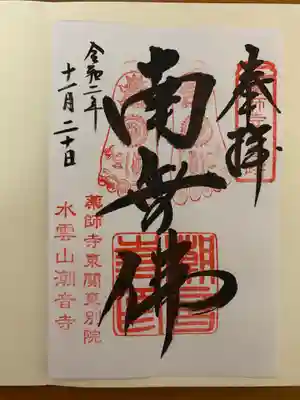 奉拝
南無佛
令和二年
十一月二十日
薬師寺東關東別院
水雲山潮音寺